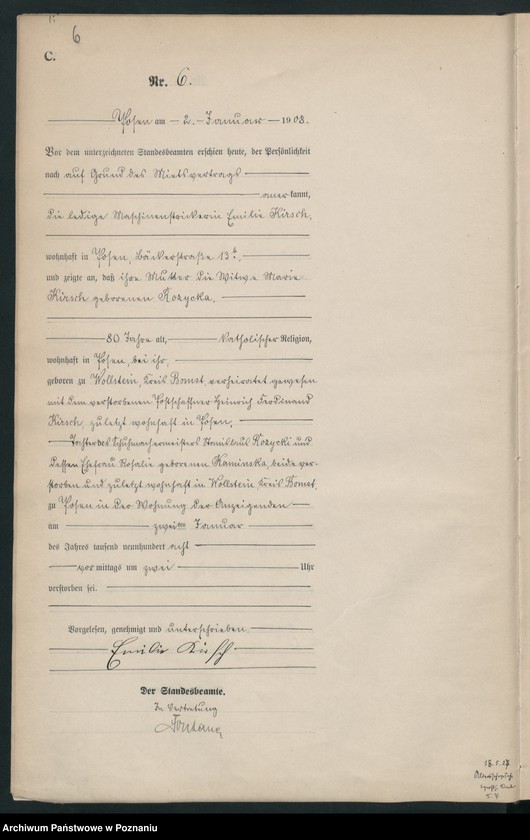 6
C.
Nr. 6.
Posen am 2. Januar 1908.
Vor dem unterzeichneten Standesbeamten erschien heute, der Persönlichkeit
nach auf Grund des Mietsvertrags
anerkannt,
die ledige Maschinenstrickerin Emilie Kirsch,
wohnhaft in Posen, Bäckerstraße 13b,
und zeigte an, daß ihre Mutter die Witwe Marie
Kirsch geborenen Rozycka,
80 Jahre alt, katholischer Religion,
wohnhaft in Posen, bei ihr,
geboren zu Wollstein, Kreis Bomst, verheiratet gewesen
mit dem verstorbenen Postschaffner Heinrich Ferdinand
Kirsch, zuletzt wohnhaft in Posen,
Tochter des Schuhmachermeisters Stanislaus Rozycki und
dessen Ehefrau Rosalie geborenen Kaminska, beide ver-
storben und zuletzt wohnhaft in Wollstein Kreis Bomst,
zu Posen in der Wohnung der Anzeigenden
am zweiten Januar
des Jahres tausend neunhundert acht
vormittags um zwei Uhr
verstorben sei.
Vorgelesen, genehmigt und unterschrieben
Emilie Kirsch
Der Standesbeamte.
In Vertretung
Fontane
18.5.27
5.4
Archiwum Państwowe w Poznaniu